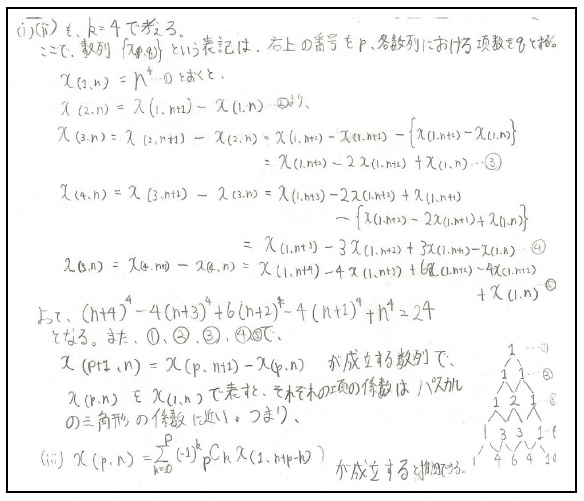 (i)(ii)も、k=4で考える。
ここで、数列 {x(p.q)} という表記は、右上の番号をp、各数列における項数をqとする。
x(1,n) = n⁴ …① とおくと、
x(2,n) = x(1,n+1) - x(1,n) …②より、
x(3,n) = x(2,n+1) - x(2,n) = x(1,n+2) - x(1,n+1) - {x(1,n+2) - x(1,n)}
= x(1,n+2) - 2x(1,n+1) + x(1,n) …③
x(4,n) = x(3,n+1) - x(3,n) = x(1,n+3) - 2x(1,n+2) + x(1,n+1)
- {x(1,n+2) - 2x(1,n+1) + x(1,n)}
= x(1,n+3) - 3x(1,n+2) + 3x(1,n+1) - x(1,n) …④
x(5,n) = x(4,n+1) - x(4,n) = x(1,n+4) - 4x(1,n+3) + 6x(1,n+2) - 4x(1,n+2)
+ x(1,n) ⑤
よって、(n+4)⁴ - 4(n+3)⁴ + 6(n+2)⁴ - 4(n+1)⁴ + n⁴ = 24
となる。また、①、②、③、④⑤で、
x(p+1,n) = x(p,n+1) - x(p,n) が成立する数列で、
x(p,n) を x(1,n) で表すと、それぞれの項の係数は パスカル
の三角形の係数に近い。つまり、
(iii) x(p,n) = Σ[k=0→p] (-1)^k pCk x(1,n+p-k) が成立すると推測できる。
1 …①
1 1 …②
1 2 1
1 3 3 1
1 4 6 4 1